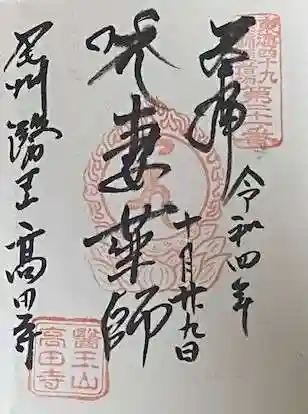 東海四十九
薬師霊場
奉拝
令和四年
十月廿九日
妻薬師
尾州 醫王 高田寺
醫王山
高田寺